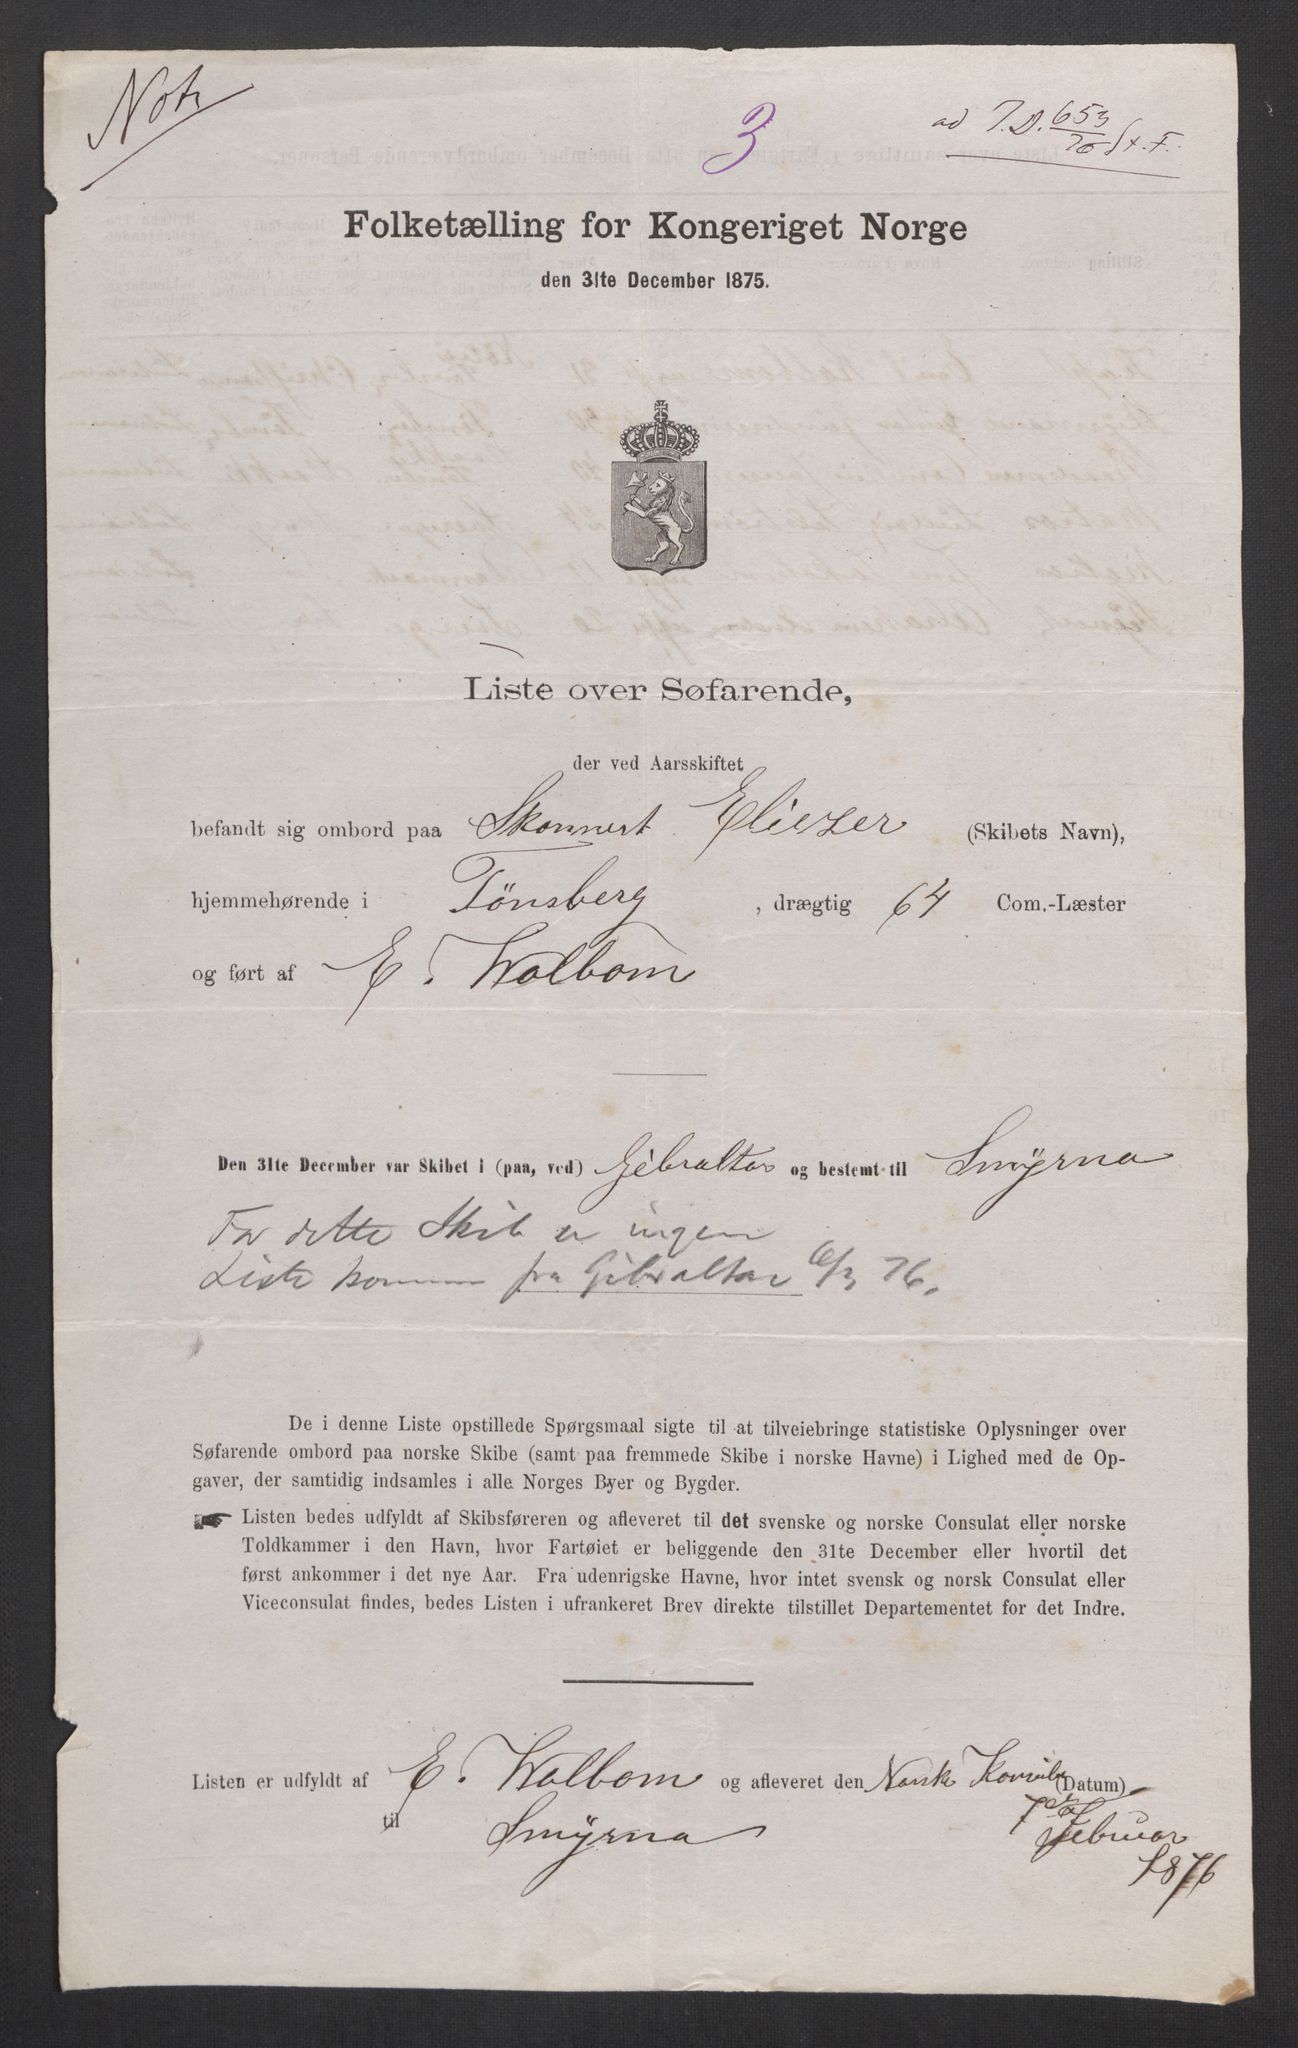 Not.
3
ad J.D. 653/76 St. F.
Folketælling for Kongeriget Norge
den 31te December 1875.
Liste over Søfarende,
der ved Aarsskiftet
befandt sig ombord paa Skonnert Eliezer (Skibets Navn),
hjemmehørende i Tönsberg, drægtig 64 Com.-Læster
og ført af E. Walbom
Den 31te December var Skibet i (paa, ved) Gibraltar og bestemt til Smÿrna
For dette Skib er ingen
Liste kommen fra Gibraltar 6/3 76.
De i denne Liste opstillede Spørgsmaal sigte til at tilveiebringe statistiske Oplysninger over
Søfarende ombord paa norske Skibe (samt paa fremmede Skibe i norske Havne) i Lighed med de Op-
gaver, der samtidig indsamles i alle Norges Byer og Bygder.
Listen bedes udfyldt af Skibsføreren og afleveret til det svenske og norske Consulat eller norske
Toldkammer i den Havn, hvor Fartøiet er beliggende den 31te December eller hvortil det
først ankommer i det nye Aar. Fra udenrigske Havne, hvor intet svensk og norsk Consulat eller
Viceconsulat findes, bedes Listen i ufrankeret Brev direkte tilstillet Departementet for det Indre.
Listen er udfyldt af E. Walbom og afleveret den Norske (Datum)
til Smÿrna 7de Februar
1876